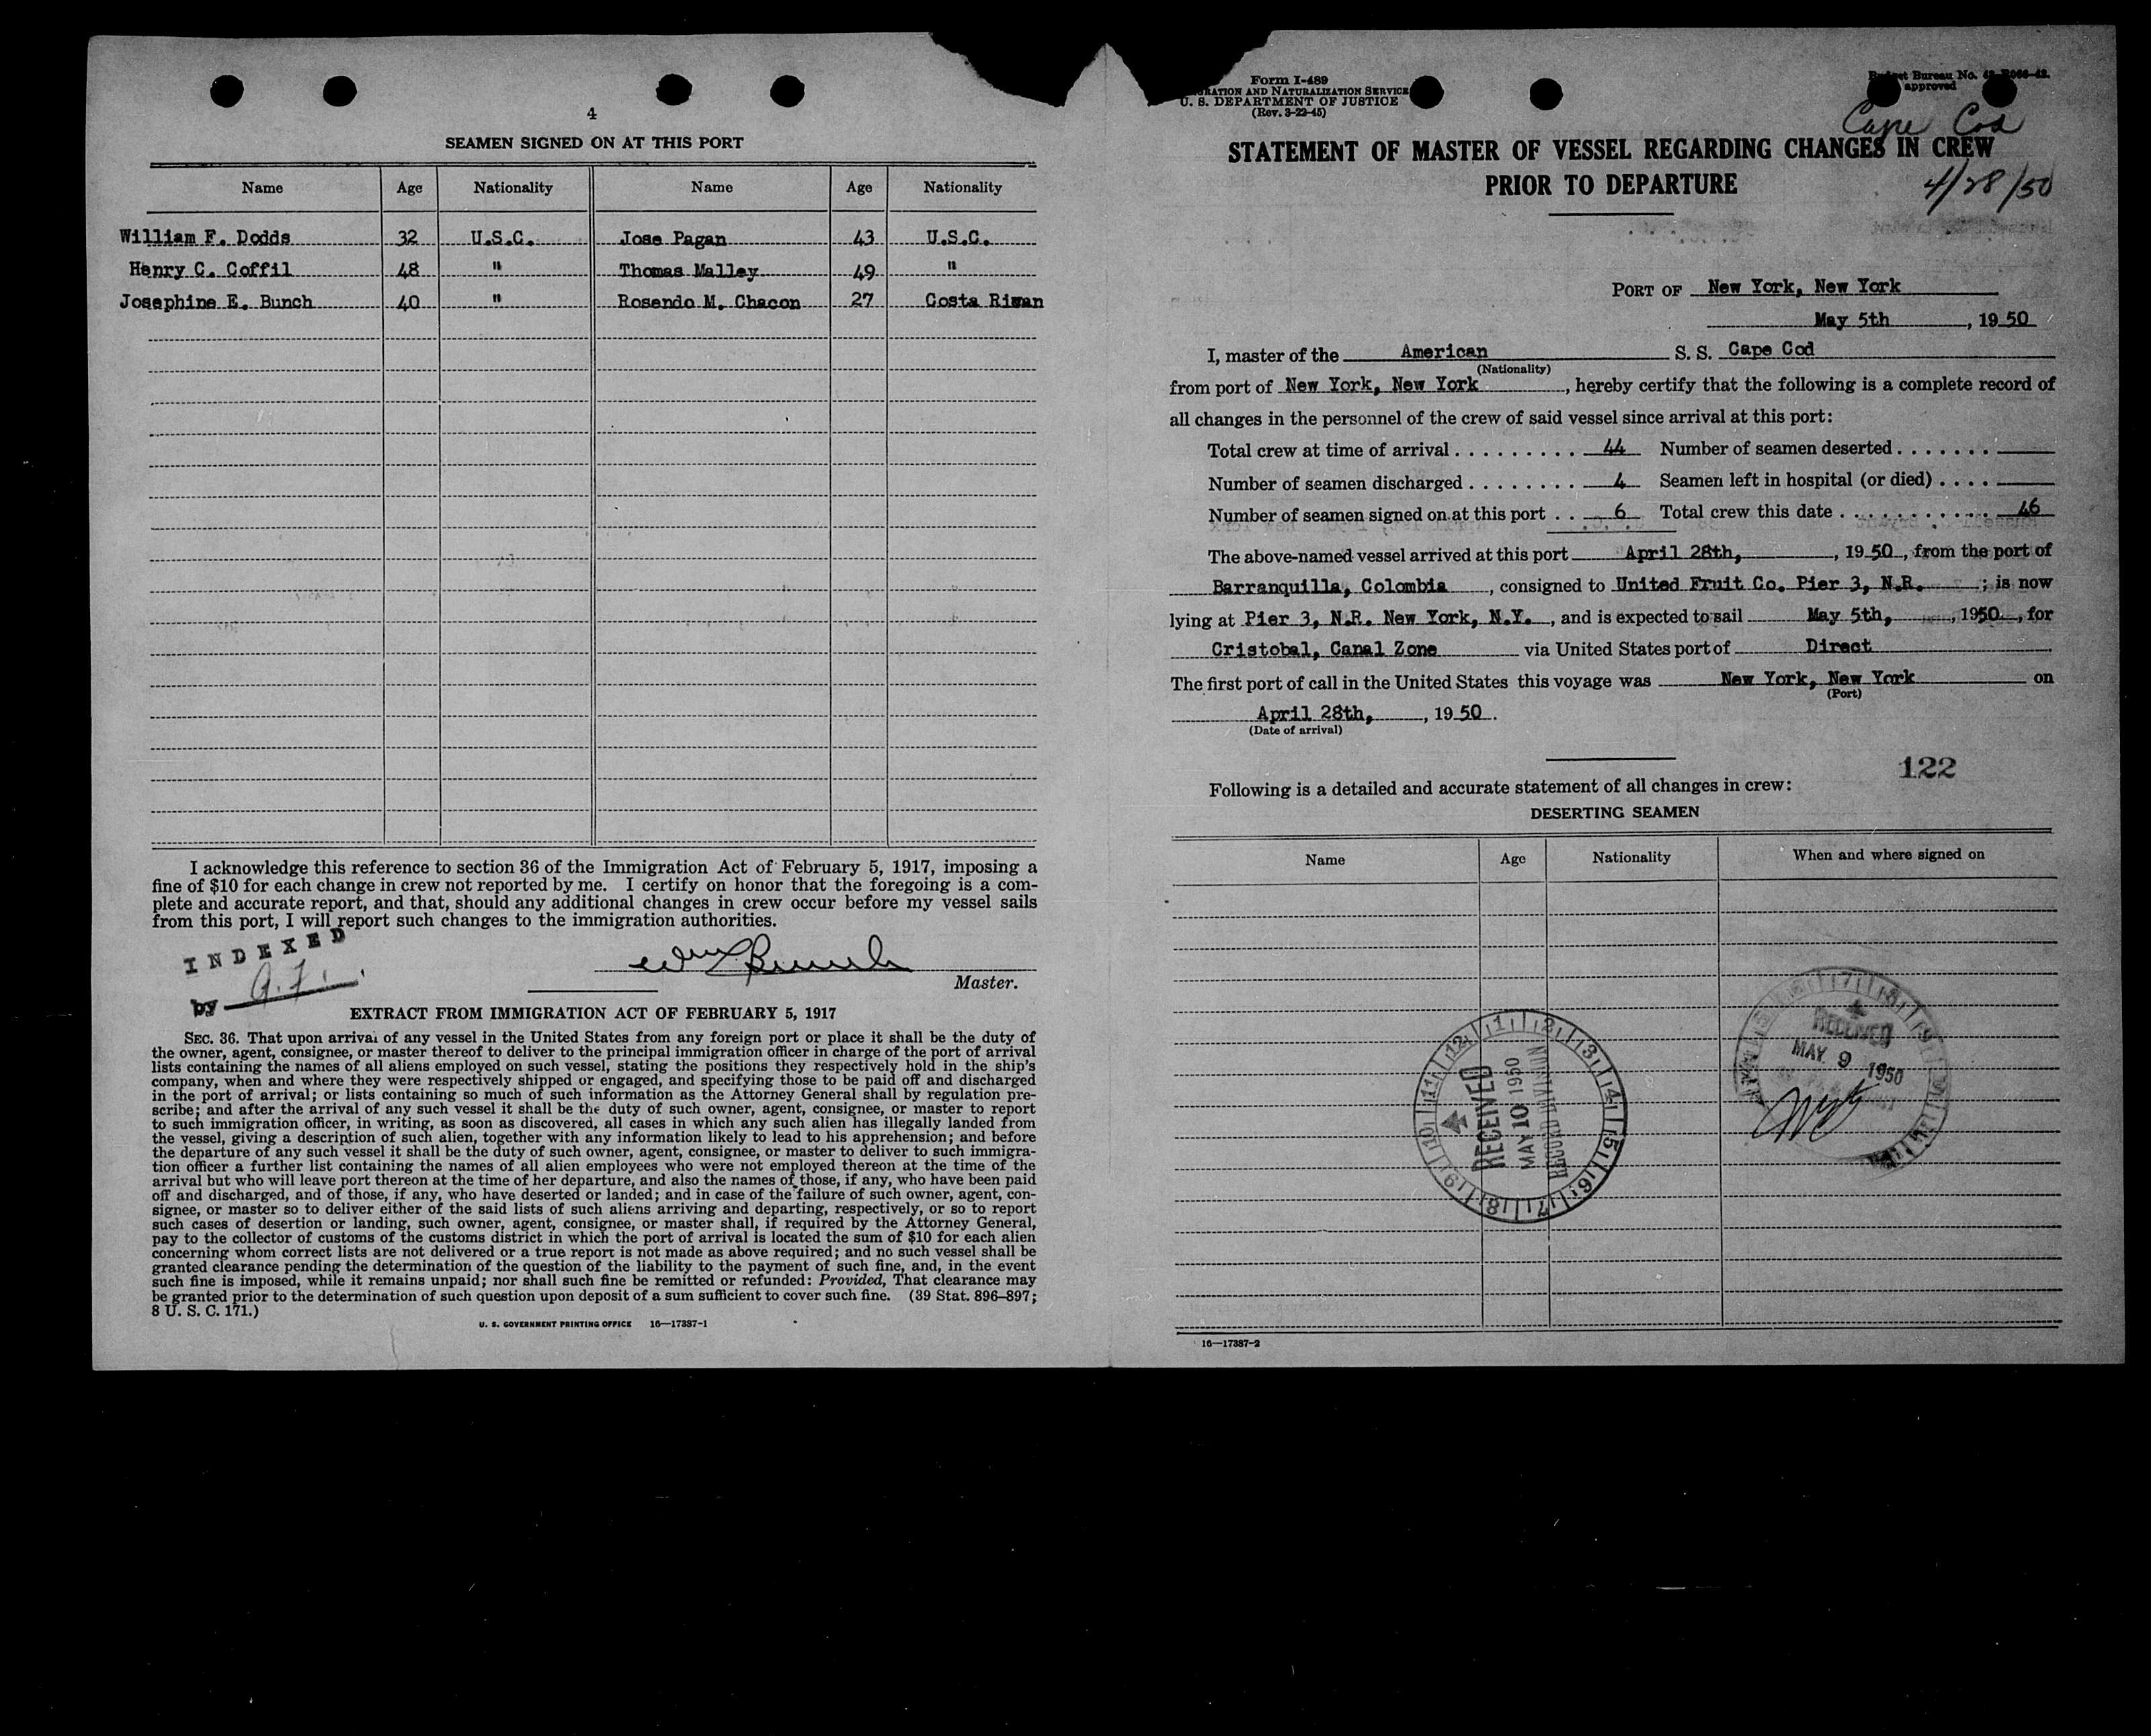 4
SEAMEN SIGNED ON AT THIS PORT
Name Age Nationality Name Age Nationality
William F. Dodds 32 U.S.C. Jose Pagan 43 U.S.C.
Henry C. Coffil 48 " Thomas Malley 49 "
Josephine E. Bunch 40 " Rosendo M. Chacon 27 Costa Rican
I acknowledge this reference to section 36 of the Immigration Act of February 5, 1917, imposing a
fine of $10 for each change in crew not reported by me. I certify on honor that the foregoing is a com-
plete and accurate report, and that, should any additional changes in crew occur before my vessel sails
from this port, I will report such changes to the immigration authorities.
INDEXED
by
Wm Bunch
Master.
EXTRACT FROM IMMIGRATION ACT OF FEBRUARY 5, 1917
SEC. 36. That upon arrival of any vessel in the United States from any foreign port or place it shall be the duty of
the owner, agent, consignee, or master thereof to deliver to the principal immigration officer in charge of the port of arrival
lists containing the names of all aliens employed on such vessel, stating the positions they respectively hold in the ship's
company, when and where they were respectively shipped or engaged, and specifying those to be paid off and discharged
in the port of arrival; or lists containing so much of such information as the Attorney General shall by regulation pre-
scribe; and after the arrival of any such vessel it shall be the duty of such owner, agent, consignee, or master to report
to such immigration officer, in writing, as soon as discovered, all cases in which any such alien has illegally landed from
the vessel, giving a description of such alien, together with any information likely to lead to his apprehension; and before
the departure of any such vessel it shall be the duty of such owner, agent, consignee, or master to deliver to such immigra-
tion officer a further list containing the names of all alien employees who were not employed thereon at the time of the
arrival but who will leave port thereon at the time of her departure, and also the names of those, if any, who have been paid
off and discharged, and of those, if any, who have deserted or landed; and in case of the failure of such owner, agent, con-
signee, or master so to deliver either of the said lists of such aliens arriving and departing, respectively, or so to report
such cases of desertion or landing, such owner, agent, consignee, or master shall, if required by the Attorney General,
pay to the collector of customs of the customs district in which the port of arrival is located the sum of $10 for each alien
concerning whom correct lists are not delivered or a true report is not made as above required; and no such vessel shall be
granted clearance pending the determination of the question of the liability to the payment of such fine, and, in the event
such fine is imposed, while it remains unpaid; nor shall such fine be remitted or refunded: Provided, That clearance may
be granted prior to the determination of such question upon deposit of a sum sufficient to cover such fine. (39 Stat. 896–897;
8 U. S. C. 171.)
U. S. GOVERNMENT PRINTING OFFICE 16—17387-1
Form I-489
AND NATURALIZATION SERVICE
U. S. DEPARTMENT OF JUSTICE
(Rev. 3-22-45)
Bureau No.
approved
Cape Cod
STATEMENT OF MASTER OF VESSEL REGARDING CHANGES IN CREW
PRIOR TO DEPARTURE
4/28/50
PORT OF New York, New York
May 5th, 1950
I, master of the American S. S. Cape Cod
(Nationality)
from port of New York, New York, hereby certify that the following is a complete record of
all changes in the personnel of the crew of said vessel since arrival at this port:
Total crew at time of arrival . . . . . . . . . . 44 Number of seamen deserted . . . . . . .
Number of seamen discharged . . . . . . . . 4 Seamen left in hospital (or died) . . . .
Number of seamen signed on at this port . . 6 Total crew this date . . . . . . . . . . . . 46
The above-named vessel arrived at this port April 28th, , 1950, from the port of
Barranquilla, Colombia, consigned to United Fruit Co. Pier 3, N.R. ; is now
lying at Pier 3, N.R. New York, N.Y. , and is expected to sail May 5th, , 1950, for
Cristobal, Canal Zone via United States port of Direct
The first port of call in the United States this voyage was New York, New York on
(Port)
April 28th, , 1950.
(Date of arrival)
122
Following is a detailed and accurate statement of all changes in crew:
DESERTING SEAMEN
Name Age Nationality When and where signed on
RECEIVED
MAY 9 1950
12 1 2 3 4 5 6 7 8 9 10 11
RECEIVED
MAY 10 1950
RECORD DIVISION
16—17387-2